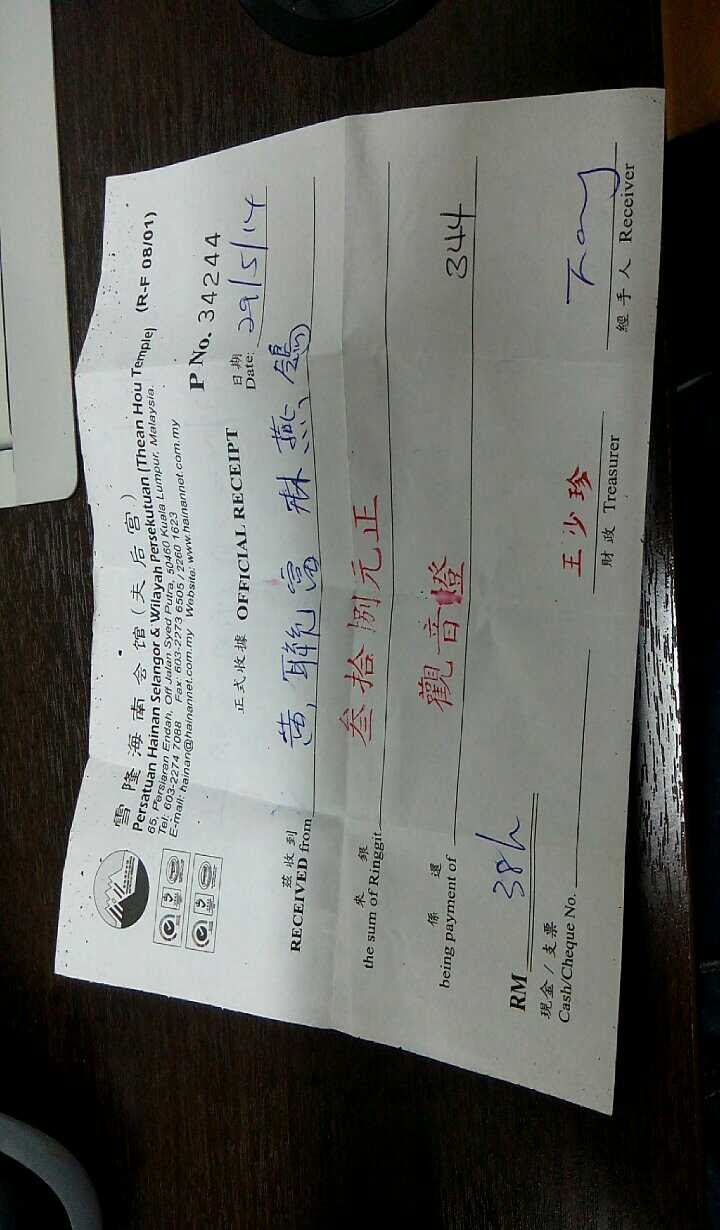 雪隆海南会馆(天后宫)
Persatuan Hainan Selangor & Wilayah Persekutuan (Thean Hou Temple) (R-F 08/01)
65, Persiaran Endah, Off Jalan Syed Putra, 50460 Kuala Lumpur, Malaysia.
Tel: 603-2274 7088 Fax: 603-2273 6505 / 2260 1623
E-mail: hainan@hainannet.com.my Website: www.hainannet.com.my
P No. 34244
正式收據 OFFICIAL RECEIPT
日期
Date: 29/5/14
茲收到
RECEIVED from 黃聯富 林燕
來銀
the sum of Ringgit 叁拾捌元正
係還
being payment of 觀音燈 344
RM 38/-
現金/支票
Cash/Cheque No.
王少珍
財政 Treasurer
經手人 Receiver